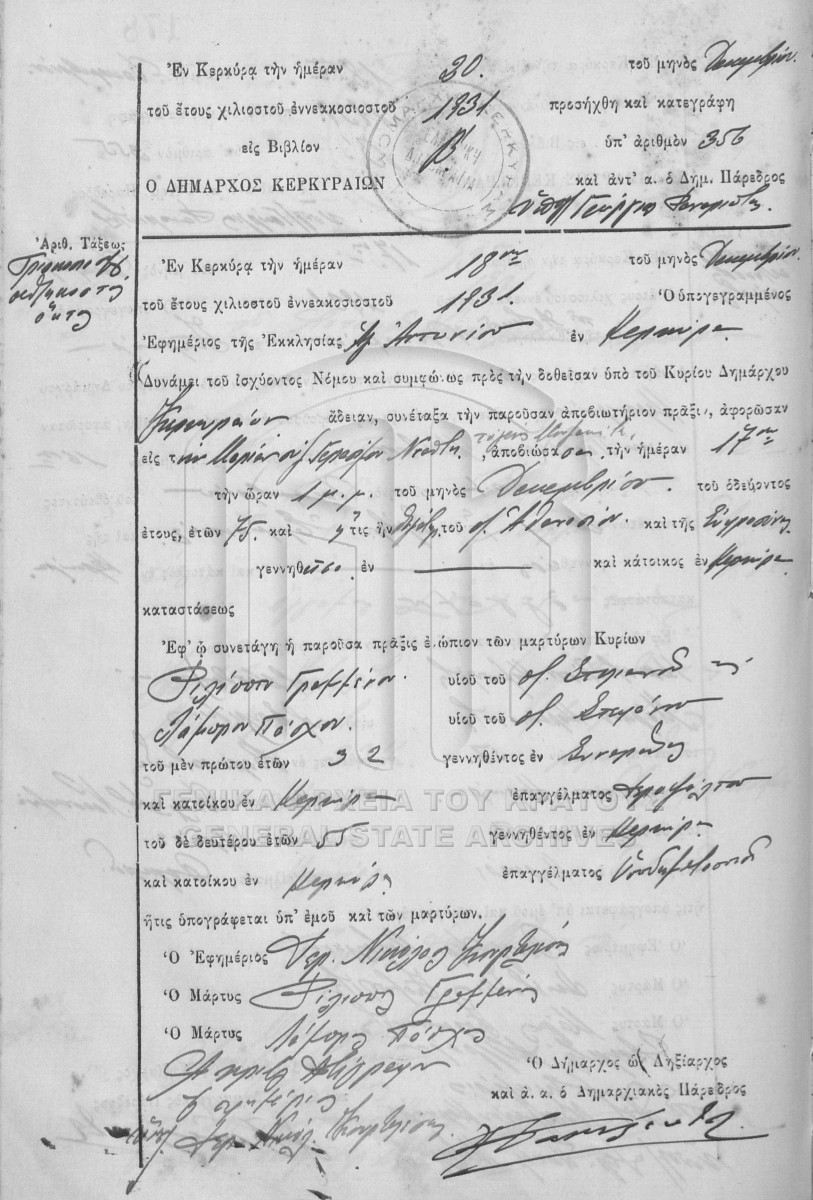 Ἐν Κερκύρᾳ τὴν ἡμέραν 30. τοῦ μηνὸς Δεκεμβρίου
τοῦ ἔτους χιλιοστοῦ ἐννεακοσιοστοῦ 1931 προσήχθη καὶ κατεγράφη
εἰς Βιβλίον Β' ὑπ' ἀριθμὸν 356
Ο ΔΗΜΑΡΧΟΣ ΚΕΡΚΥΡΑΙΩΝ καὶ ἀντ' α. ὁ Δημ. Πάρεδρος
Γεώργιος
Ἀριθ. Τάξεως
Ἐν Κερκύρᾳ τὴν ἡμέραν 18ην τοῦ μηνὸς Δεκεμβρίου
ὀκτώ
τοῦ ἔτους χιλιοστοῦ ἐννεακοσιοστοῦ 1931. Ὁ ὑπογεγραμμένος
Ἐφημέριος τῆς Ἐκκλησίας Ἁγ. Ἀντωνίου ἐν Κερκύρᾳ
Δυνάμει τοῦ ἰσχύοντος Νόμου καὶ συμφώνως πρὸς τὴν δοθεῖσαν ὑπὸ τοῦ Κυρίου Δημάρχου
Κερκυραίων ἄδειαν, συνέταξα τὴν παροῦσαν ἀποβιωτήριον πρᾶξιν, ἀφορῶσαν
εἰς τὴν ἀποβιώσασα τὴν ἡμέραν 17ην
τὴν ὥραν 1 μ.μ. τοῦ μηνὸς Δεκεμβρίου. τοῦ ὁδεύοντος
ἔτους, ἐτῶν 75 καὶ ἥτις ἦν τοῦ Ἀθανασίου καὶ τῆς Εὐφροσύνης
γεννηθεῖσα ἐν καὶ κάτοικος ἐν Κερκύρᾳ
καταστάσεως
Ἐφ' ᾧ συνετάγη ἡ παροῦσα πρᾶξις ἐνώπιον τῶν μαρτύρων Κυρίων
Φιλίππου Γραμμένου υἱοῦ τοῦ
Λάμπρου Πάσχου. υἱοῦ τοῦ
τοῦ μὲν πρώτου ἐτῶν 32 γεννηθέντος ἐν Συναράδες
καὶ κατοίκου ἐν Κερκύρᾳ ἐπαγγέλματος Ἱεροψάλτου
ΓΕΝΙΚΑ ΑΡΧΕΙΑ ΤΟΥ ΚΡΑΤΟΥΣ
GENERAL STATE ARCHIVES
τοῦ δὲ δευτέρου ἐτῶν 55 γεννηθέντος ἐν Κερκύρᾳ
καὶ κατοίκου ἐν Κερκύρᾳ ἐπαγγέλματος
ἥτις ὑπογράφεται ὑπ' ἐμοῦ καὶ τῶν μαρτύρων.
Ὁ Ἐφημέριος Ἱερ. Νικόλαος
Ὁ Μάρτυς Φίλιππος Γραμμένος
Ὁ Μάρτυς Λάμπρος Πάσχος
Ἀκριβὲς Ἀντίγραφον
Ὁ Δήμαρχος ὡς Ληξίαρχος
καὶ ἀ. α. ὁ Δημαρχιακὸς Πάρεδρος